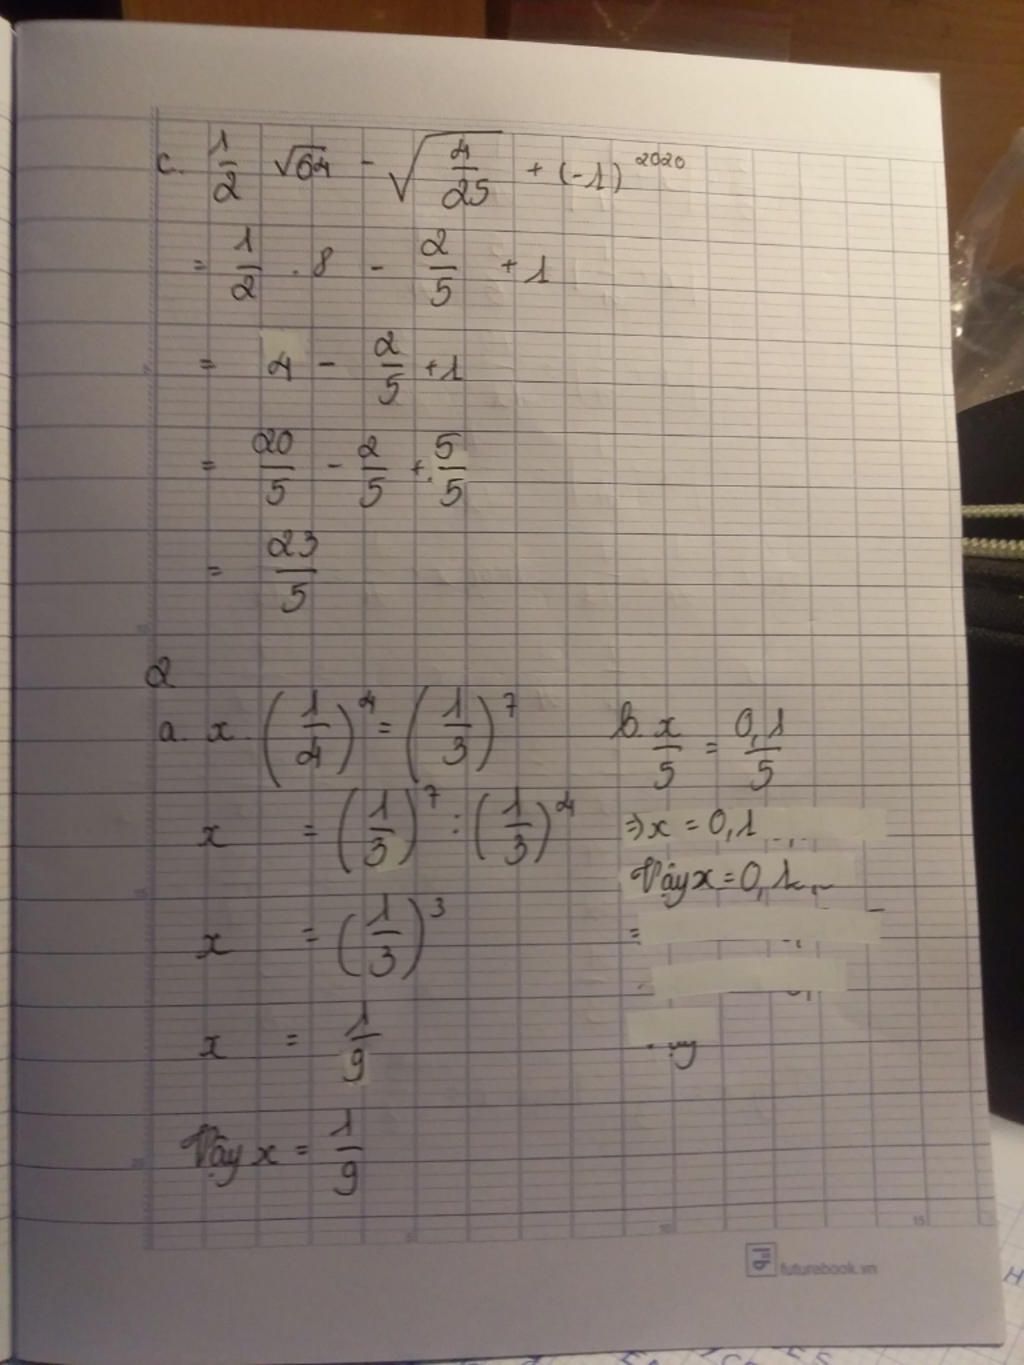 c. 1/2 √64 - √(4/25) + (-1)^2020
= 1/2 . 8 - 2/5 + 1
= 4 - 2/5 + 1
= 20/5 - 2/5 + 5/5
= 23/5
2
a. x . (1/4)^4 = (1/3)^7
x = (1/3)^7 : (1/3)^4
x = (1/3)^3
x = 1/9
Vậy x = 1/9
b. x/5 = 0,1/5
⇒ x = 0,1
Vậy x = 0,1
=
futurebook.vn